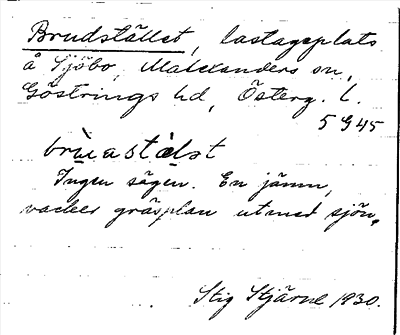 Brudstället, lastageplats
å Sjöbo, Malexanders sn,
Göstrings hd, Österg. l.
5 G 45
Ingen sägen. En jämn,
vacker gräsplan utmed sjön.
Stig Stjärne 1930.